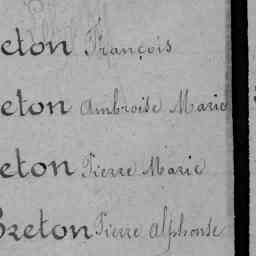 eton François
eton Ambroise Marie
eton Pierre Marie
Breton Pierre Alphonse